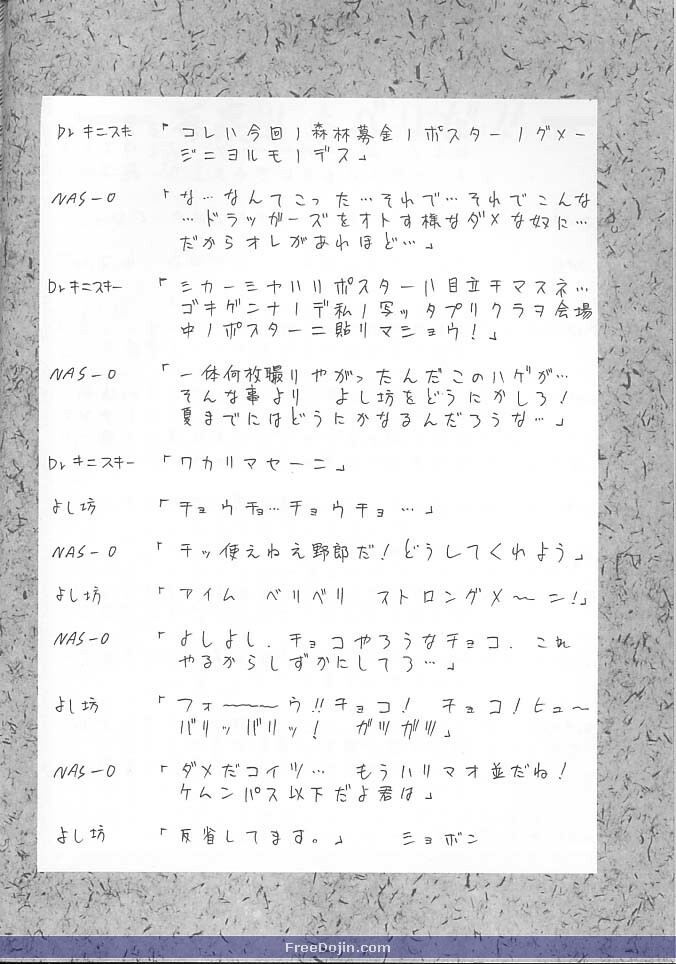 Dr.キニスキ 「コレハ今回ノ森林募金ノポスターノダメー
ジニヨルモノデス」
NAS-O 「な…なんてこった…それで…それでこんな
…ドラッガーズをオトす様なダメな奴に…。
だからオレがあれほど…」
Dr.キニスキー 「シカーミヤハリポスターハ目立チマスネ…
ゴキゲンナノデ私ノ写ッタプリクラヲ会場
中ノポスターニ貼リマショウ!」
NAS-O 「一体何枚撮りやがったんだこのハゲが…
そんな事より よし坊をどうにかしろ!
夏までにはどうにかなるんだろうな…」
Dr.キニスキー 「ワカリマセーニ」
よし坊 「チョウチョ…チョウチョ…」
NAS-O 「チッ使えねえ野郎だ!どうしてくれよう」
よし坊 「アイム ベリベリ ストロングメ〜ン!」
NAS-O 「よしよし.チョコやろうなチョコ.これ
やるからしずかにしてろ…」
よし坊 「フォ〜〜〜ウ!!チョコ! チョコ!ヒュ〜
バリッバリッ! ガツガツ」
NAS-O 「ダメだコイツ… もうハリマオ並だね!
ケムンパス以下だよ君は」
よし坊 「反省してます。」 ショボン
FreeDojin.com